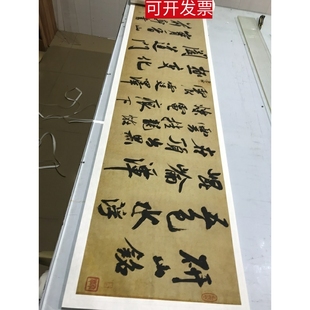 可开发票
研山銘
五色水浮
崑崙潭
在頂出黑
雲挂龍怪
爍電痕下
震霆澤厚
極變化
闔道門